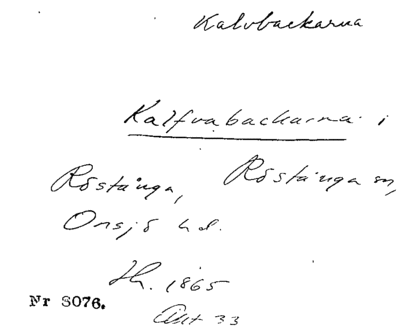 Kalvbackarna
Kalfvabackarna i
Röstånga, Röstånga sn,
Onsjö hd.
Th. 1865
Akt 33
Nr S076.